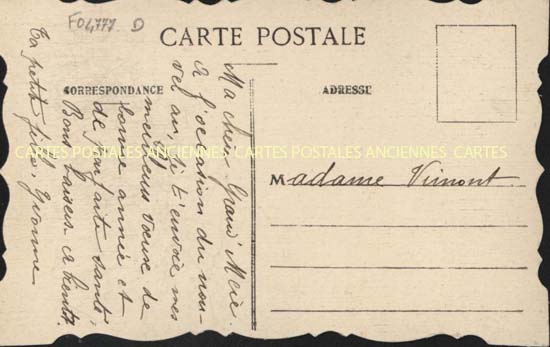 F04777 D
CARTE POSTALE
CORRESPONDANCE
ADRESSE
Ma chère Grand'Mère.
A l'occation du nou-
vel an, je t'envoie mes
meilleurs voeux de
bonne année et
de parfaite santé,
Bons baisers. a bientôt
Ta petite fille, Yvonne
Madame Vimont.
CARTES POSTALES ANCIENNES CARTES POSTALES ANCIENNES CARTES POSTALES